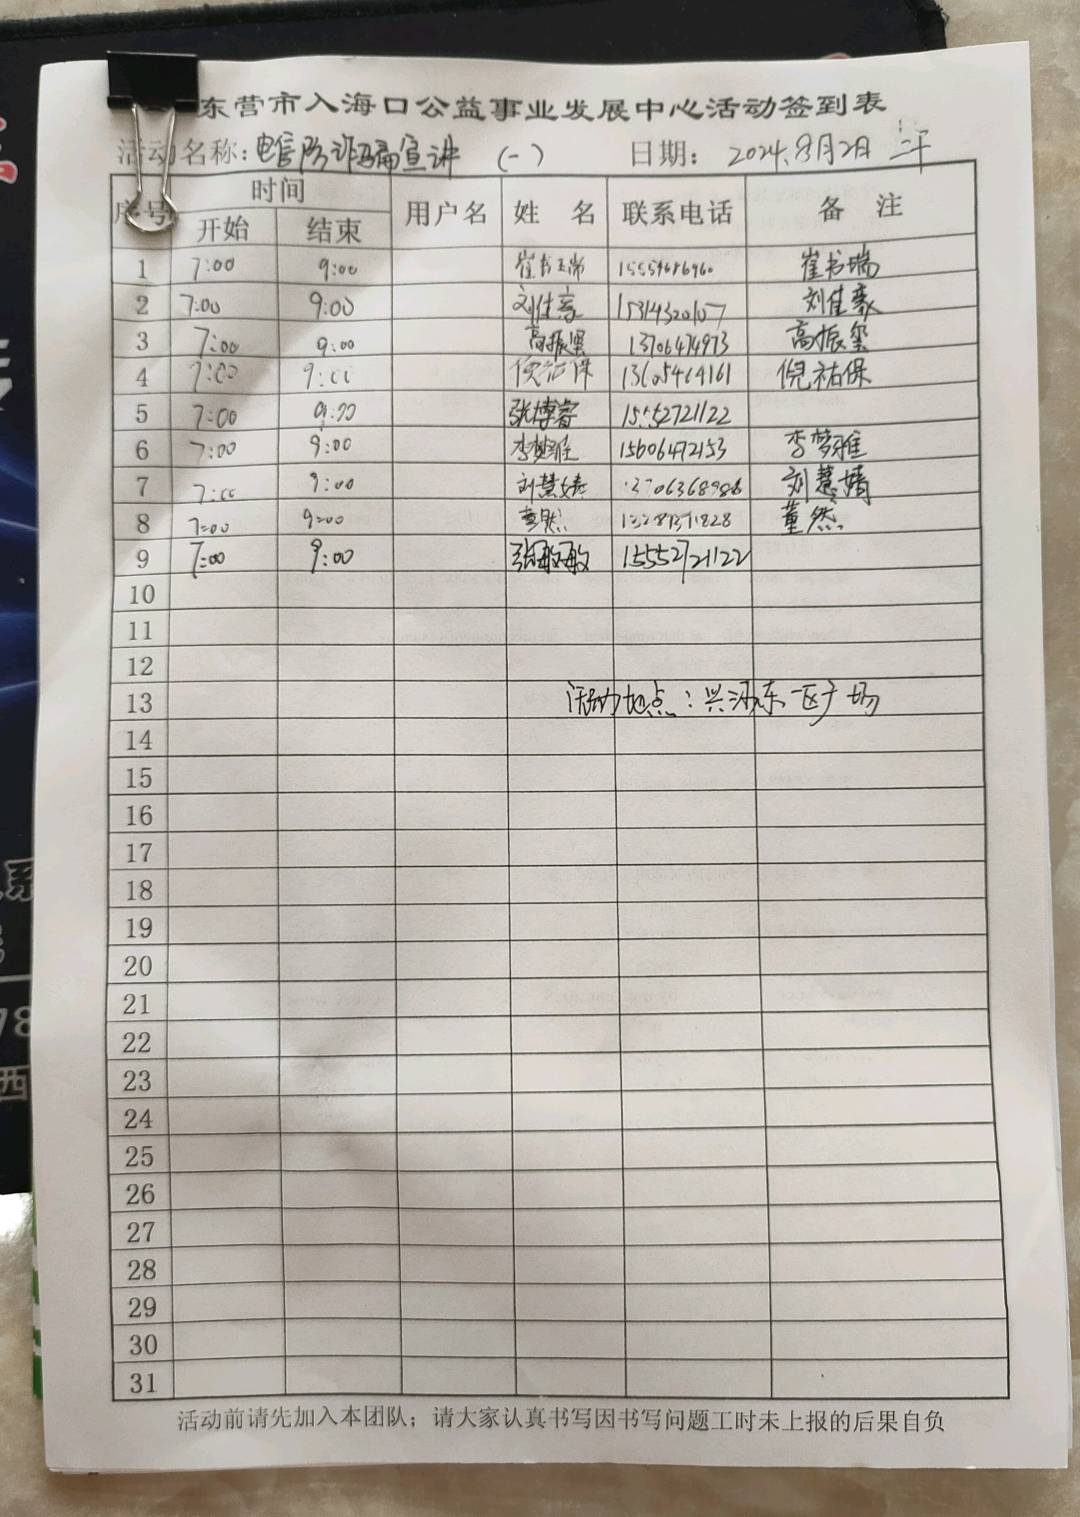 东营市入海口公益事业发展中心活动签到表
活动名称：电信防诈骗宣讲 （一） 日期： 2024.8月2日
序号 时间 用户名 姓 名 联系电话 备 注
开始 结束
1 7:00 9:00 崔书瑞 崔书瑞
2 7:00 9:00 刘佳豪 15314320157 刘佳豪
3 7:00 9:00 高振玺 13706474973 高振玺
4 7:00 9:00 倪祐保 13605464161 倪祐保
5 7:00 9:00 张博睿 15552721122
6 7:00 9:00 李梦雅 15606472153 李梦雅
7 7:00 9:00 刘慧婧 13706368986 刘慧婧
8 7:00 9:00 董然 董然
9 7:00 9:00 张敏敏 15552721122
10
11
12
13 活动地点：兴河东区广场
14
15
16
17
18
19
20
21
22
23
24
25
26
27
28
29
30
31
活动前请先加入本团队；请大家认真书写因书写问题工时未上报的后果自负